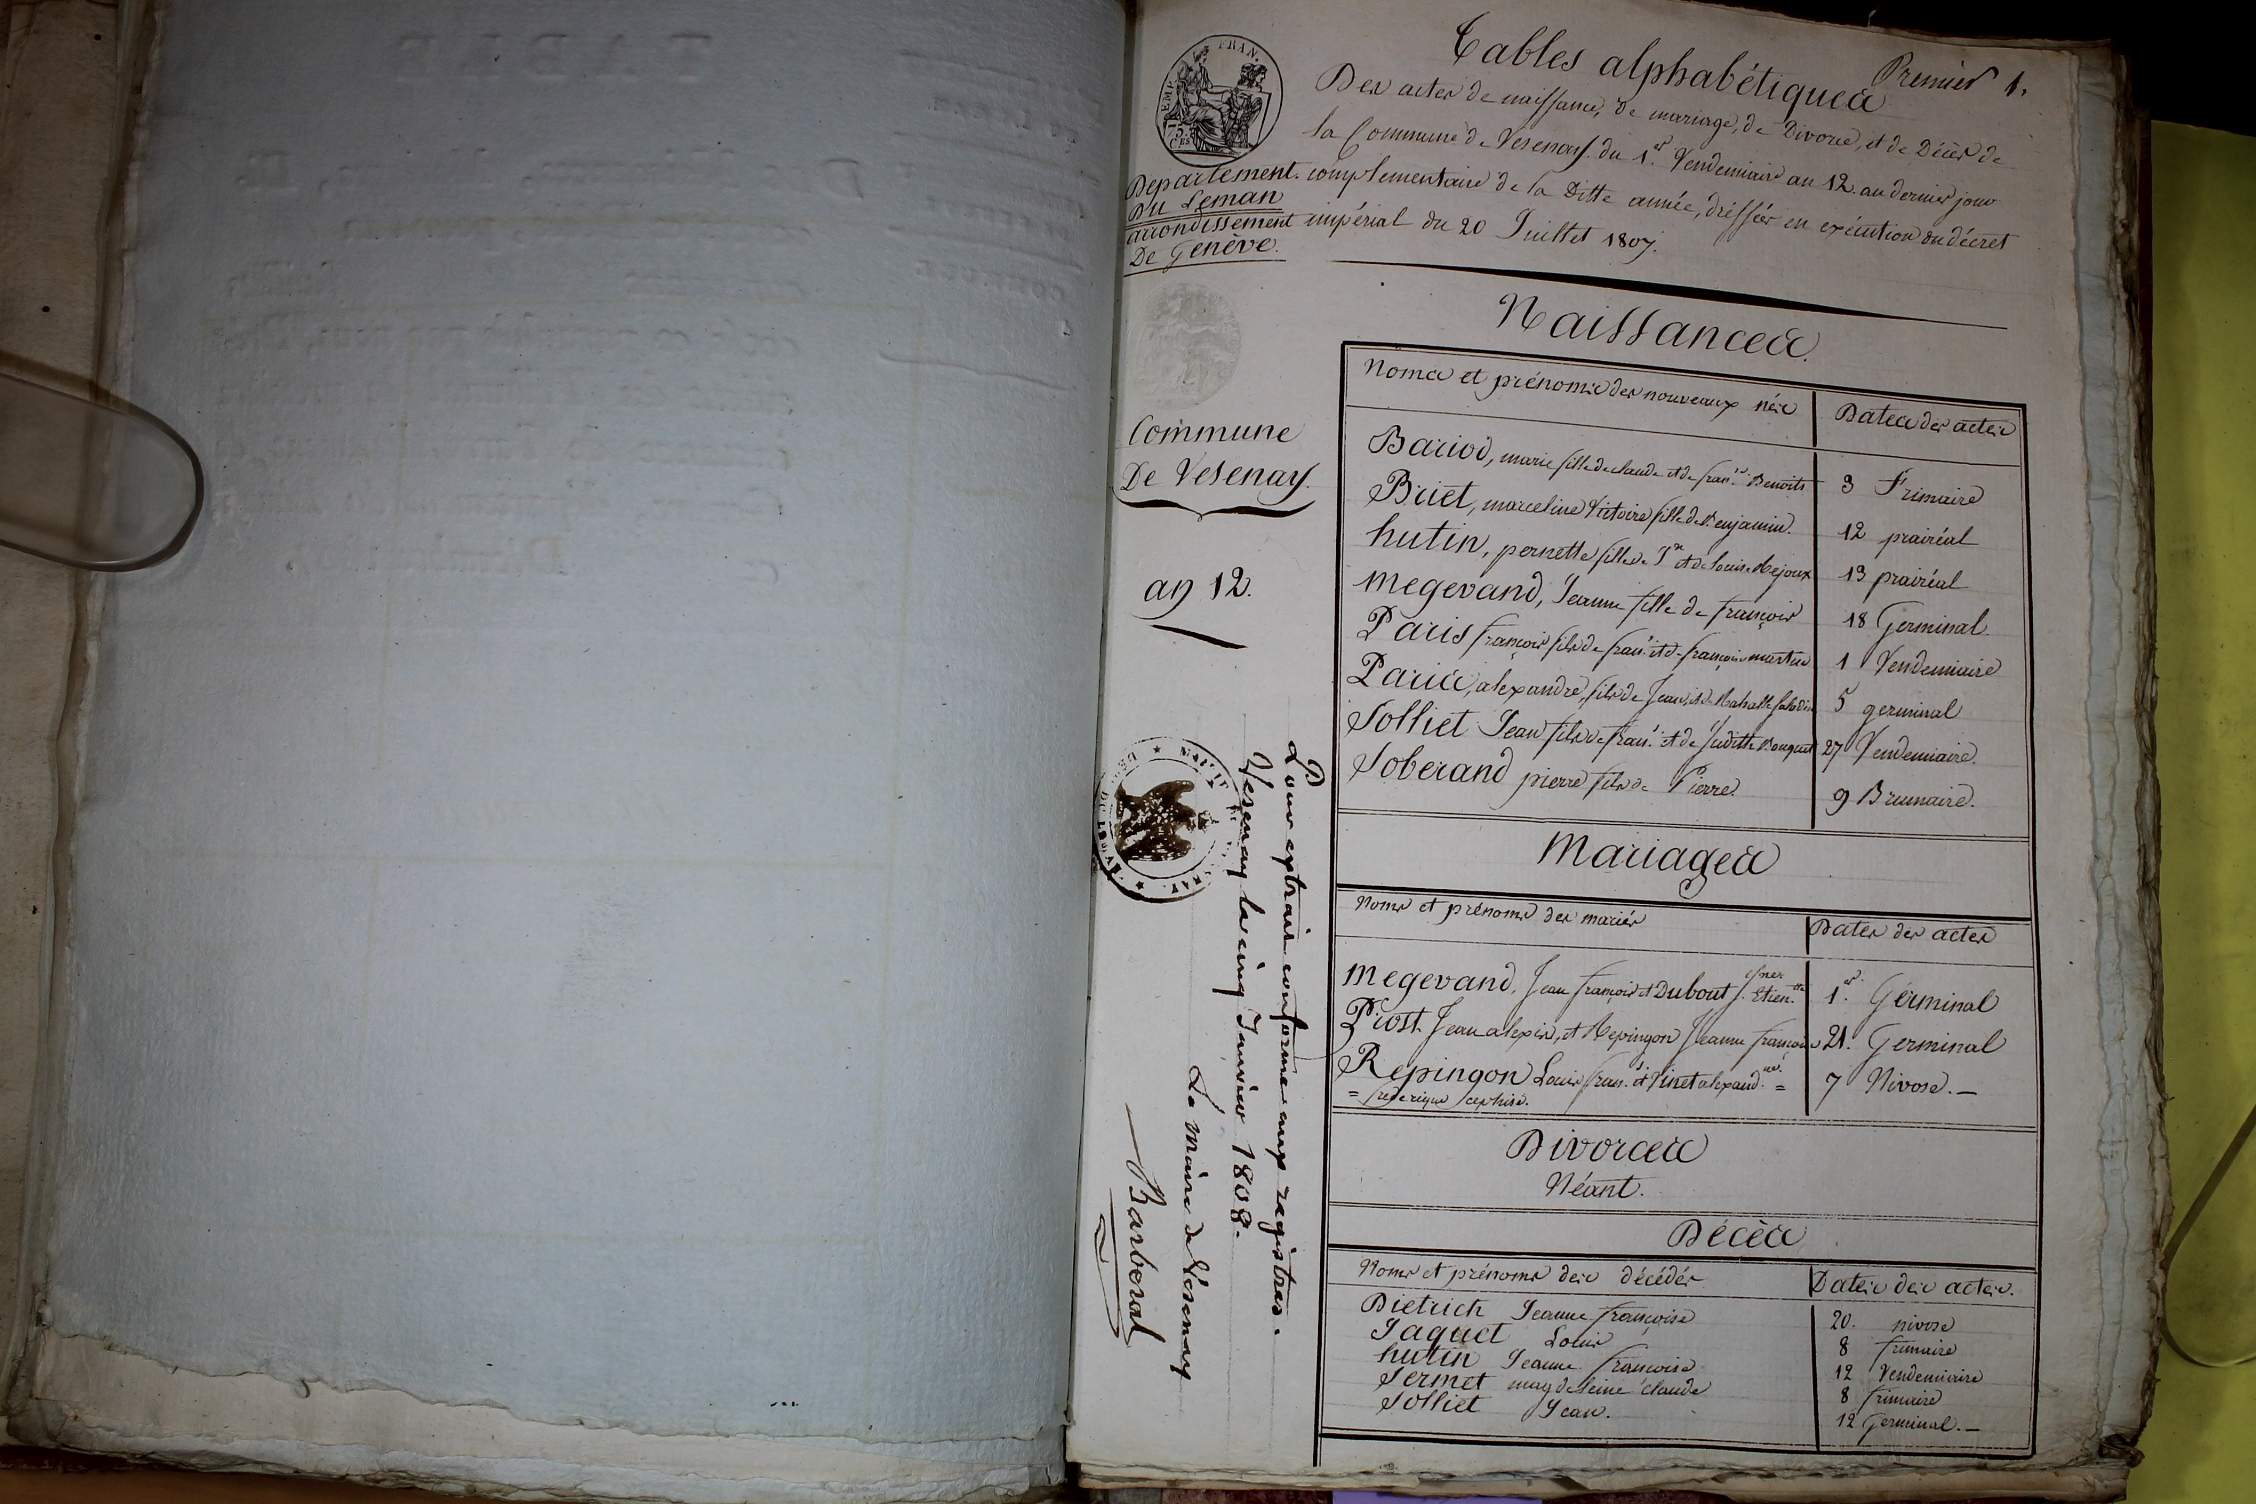 Premier 1.
Tables alphabétiques
Des actes de naissance, de mariage, de Divorce, et de Décès de
la Commune de Vesenay. du 1.er Vendemiaire an 12. au dernier jour
complementaire de la ditte année, dréssées en exécution du décret
impérial du 20 Juillet 1807.
EMP. FRAN.
75.
CES
Departement.
Du Leman
arrondissement
De Genève.
Commune
De Vesenay.
an 12.
Naissances.
Noms et prénoms des nouveaux nés
Dates des actes
Bariod, marie fille de claude et de fran.se Benoits 3 Frimaire
Briet, marceline Victoire fille de Benjamin. 12 prairéal
hutin, pernette fille de J.n et de Louise Mejoux 13 prairéal
Megevand, Jeanne fille de françois 18 Germinal.
Paris françois fils de fran.s et de françoise 1 Vendemiaire
Paris, alexandre, fils de Jean, et de 5 germinal
Solliet Jean fils de fran.s et de Juditte Bouquet 27 Vendemiaire.
Soberand pierre fils de Pierre. 9 Brumaire.
Mariages
Noms et prénoms des mariés
Dates des actes
Megevand, Jean François et Dubout J. Etien.tte 1.er Germinal
Prost. Jean alexis, et Repingon Jeanne françoise 21. Germinal
Repingon Louis fran.s et Pinet alexand.ne = 7 Nivose. —
= frederique sephise.
Divorces
Néant.
Décès
Noms et prénoms des décédés
Dates des actes.
Dietrich Jeanne françoise 20. nivose
Jaquet Louis 8 frimaire
hutin Jeanne françoise 12 Vendemiaire
Sermet magdeleine claude 8 frimaire
Solliet Jean. 12 Germinal. —
Pour extrait conforme aux registres.
Vesenay le cinq Janvier 1808.
Le maire de Vesenay
Barberat